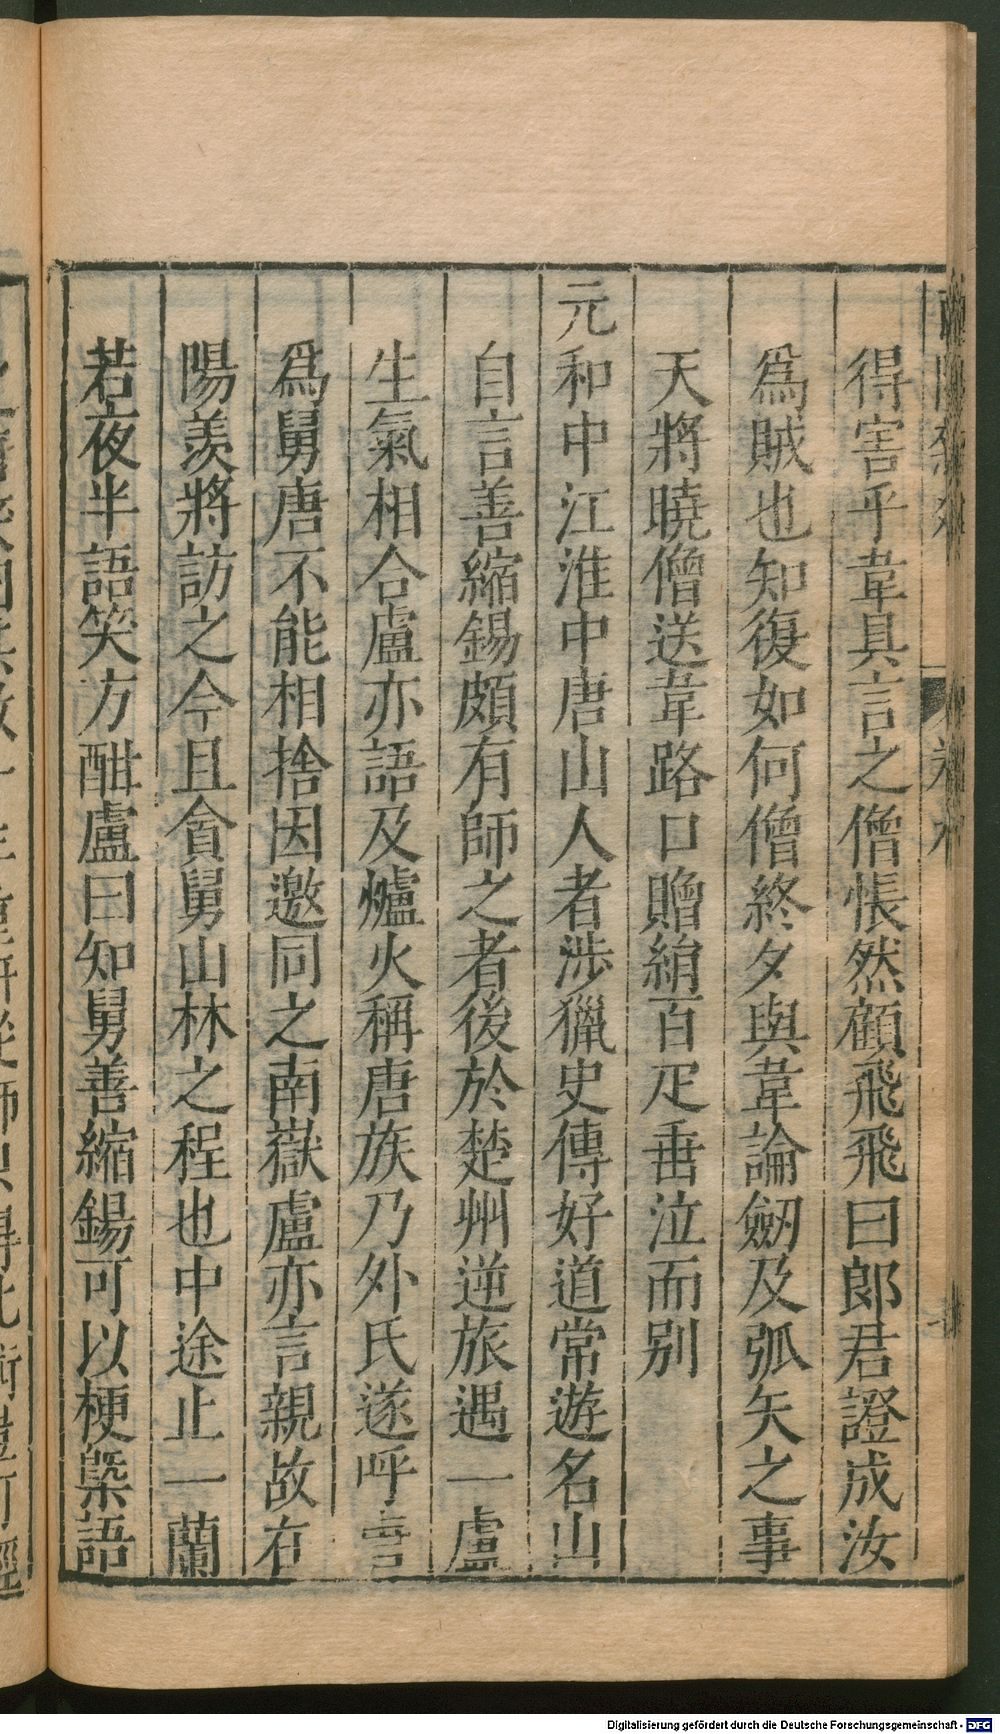 得害乎韋具言之僧悵然顧飛飛曰郎君證成汝
爲賊也知復如何僧終夕與韋論劒及弧矢之事
天將曉僧送韋路口贈絹百疋垂泣而别
元和中江淮中唐山人者涉獵史傳好道常遊名山
自言善縮錫頗有師之者後於楚州逆旅遇一盧
生氣相合盧亦語及爐火稱唐族乃外氏遂呼唐
爲舅唐不能相捨因邀同之南嶽盧亦言親故在
陽羨將訪之今且貪舅山林之程也中途止一蘭
若夜半語笑方酣盧曰知舅善縮錫可以梗槩語
Digitalisierung gefördert durch die Deutsche Forschungsgemeinschaft - DFG